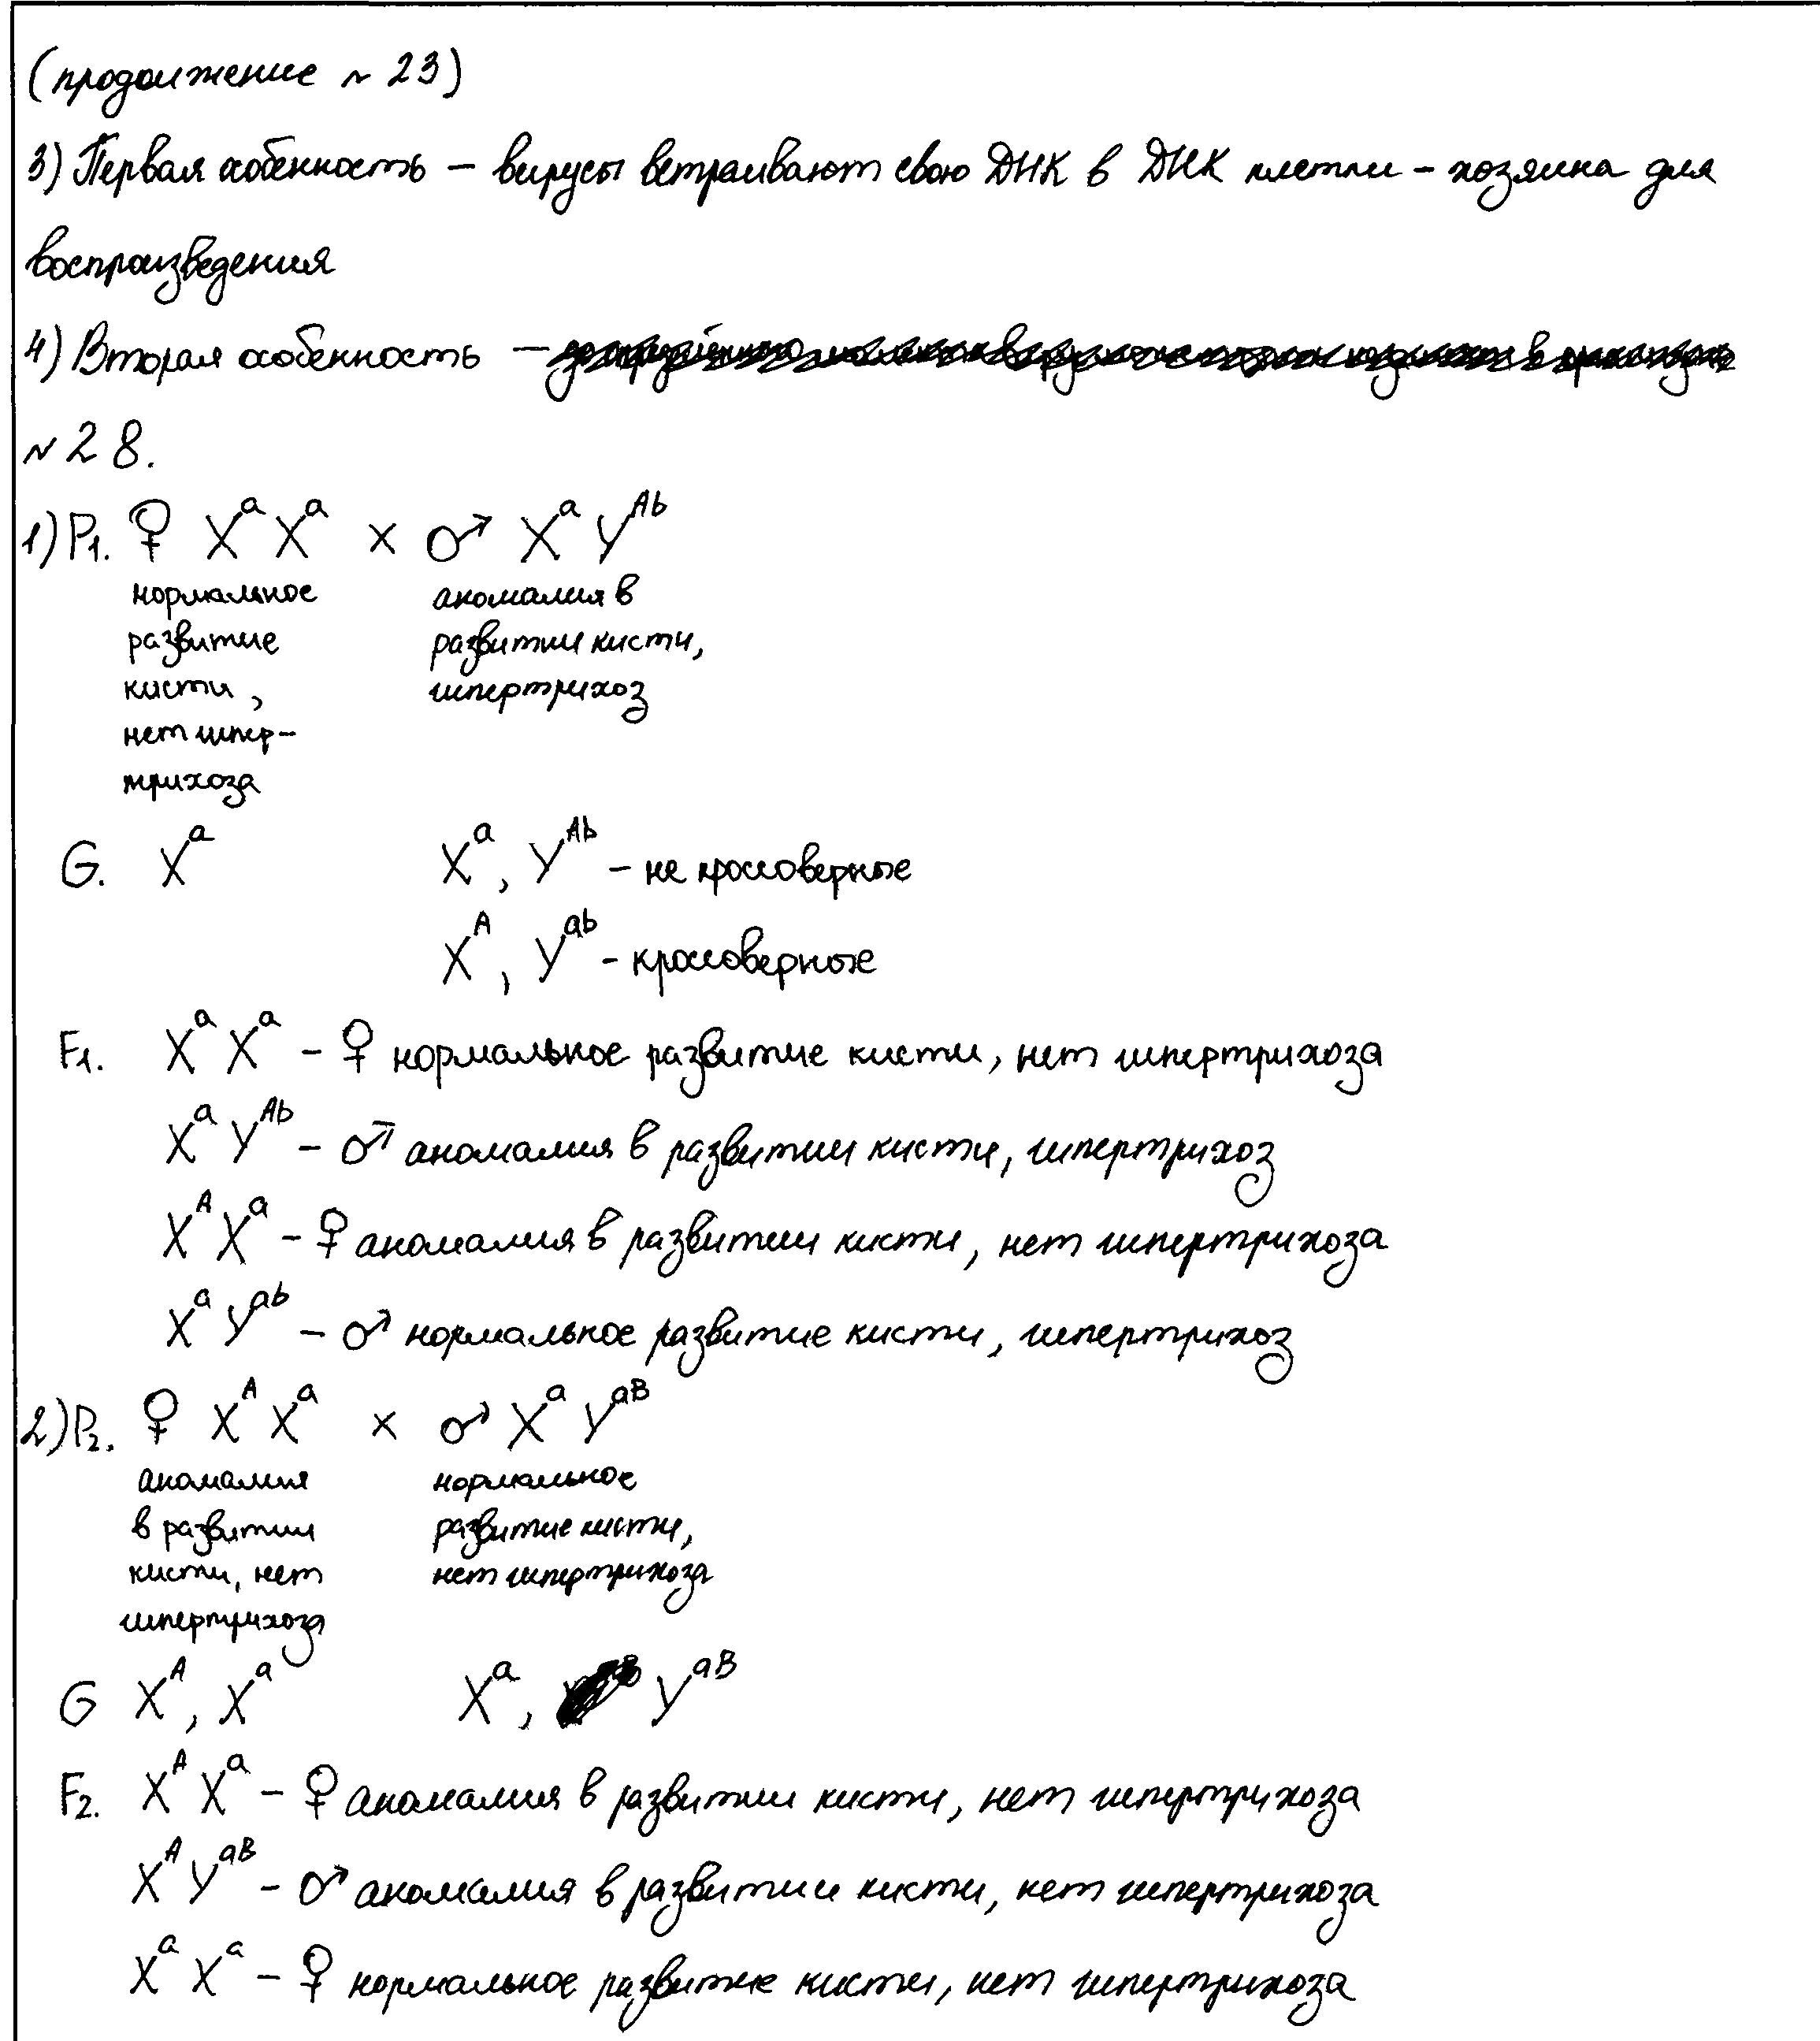 (продолжение №23)
3) Первая особенность – вирусы встраивают свою ДНК в ДНК клетки-хозяина для
воспроизведения
4) Вторая особенность –
№28.
1) P1. ♀ XᵃXᵃ × ♂ XᵃYᴬᵇ
нормальное аномалия в
развитие развитии кисти,
кисти, гипертрихоз
нет гипер-
трихоза
G. Xᵃ Xᵃ, Yᴬᵇ – не кроссоверные
Xᴬ, Yᵃᵇ – кроссоверные
F1. XᵃXᵃ – ♀ нормальное развитие кисти, нет гипертрихоза
XᵃYᴬᵇ – ♂ аномалия в развитии кисти, гипертрихоз
XᴬXᵃ – ♀ аномалия в развитии кисти, нет гипертрихоза
XᵃYᵃᵇ – ♂ нормальное развитие кисти, гипертрихоз
2) P2. ♀ XᴬXᵃ × ♂ XᵃYᵃᴮ
аномалия нормальное
в развитии развитие кисти,
кисти, нет нет гипертрихоза
гипертрихоза
G Xᴬ, Xᵃ Xᵃ, Yᵃᴮ
F2. XᴬXᵃ – ♀ аномалия в развитии кисти, нет гипертрихоза
XᴬYᵃᴮ – ♂ аномалия в развитии кисти, нет гипертрихоза
XᵃXᵃ – ♀ нормальное развитие кисти, нет гипертрихоза